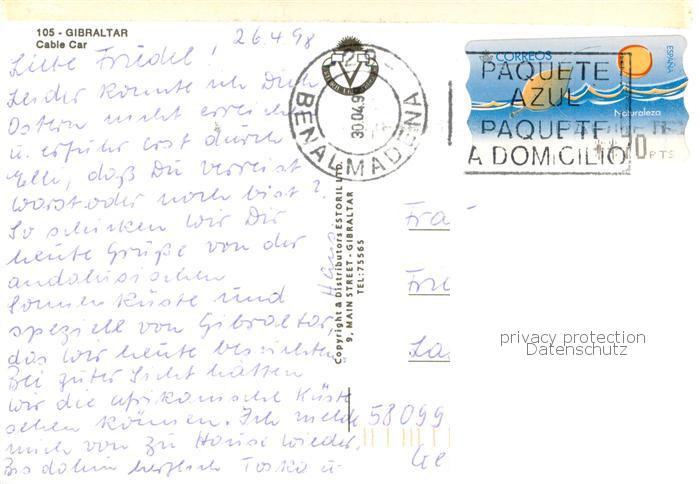 105 - GIBRALTAR
Cable Car
26.4.98
Liebe Friedel!
Leider konnte ich Dich
Ostern nicht erreichen
u. erfuhr erst durch
Elli, daß Du verreist
warst oder noch bist?
So schicken wir Dir
heute Grüße von der
andalusischen
Sonnenküste und
speziell von Gibraltar,
das wir heute besichten.
Bei guter Sicht hatten
wir die afrikanische Küste
sehen können. Ich melde
mich von zu Hause wieder.
Bis dahin herzlich Toska u.
Hans
Copyright & Distributors ESTORIL LTD.
9, MAIN STREET - GIBRALTAR
TEL: 75565
BENALMADENA
30.04.9
CORREOS
ESPAÑA
Naturaleza
PTS
PAQUETE
AZUL
PAQUETE
A DOMICILIO
Fra
Frie
La
58099
privacy protection
Datenschutz